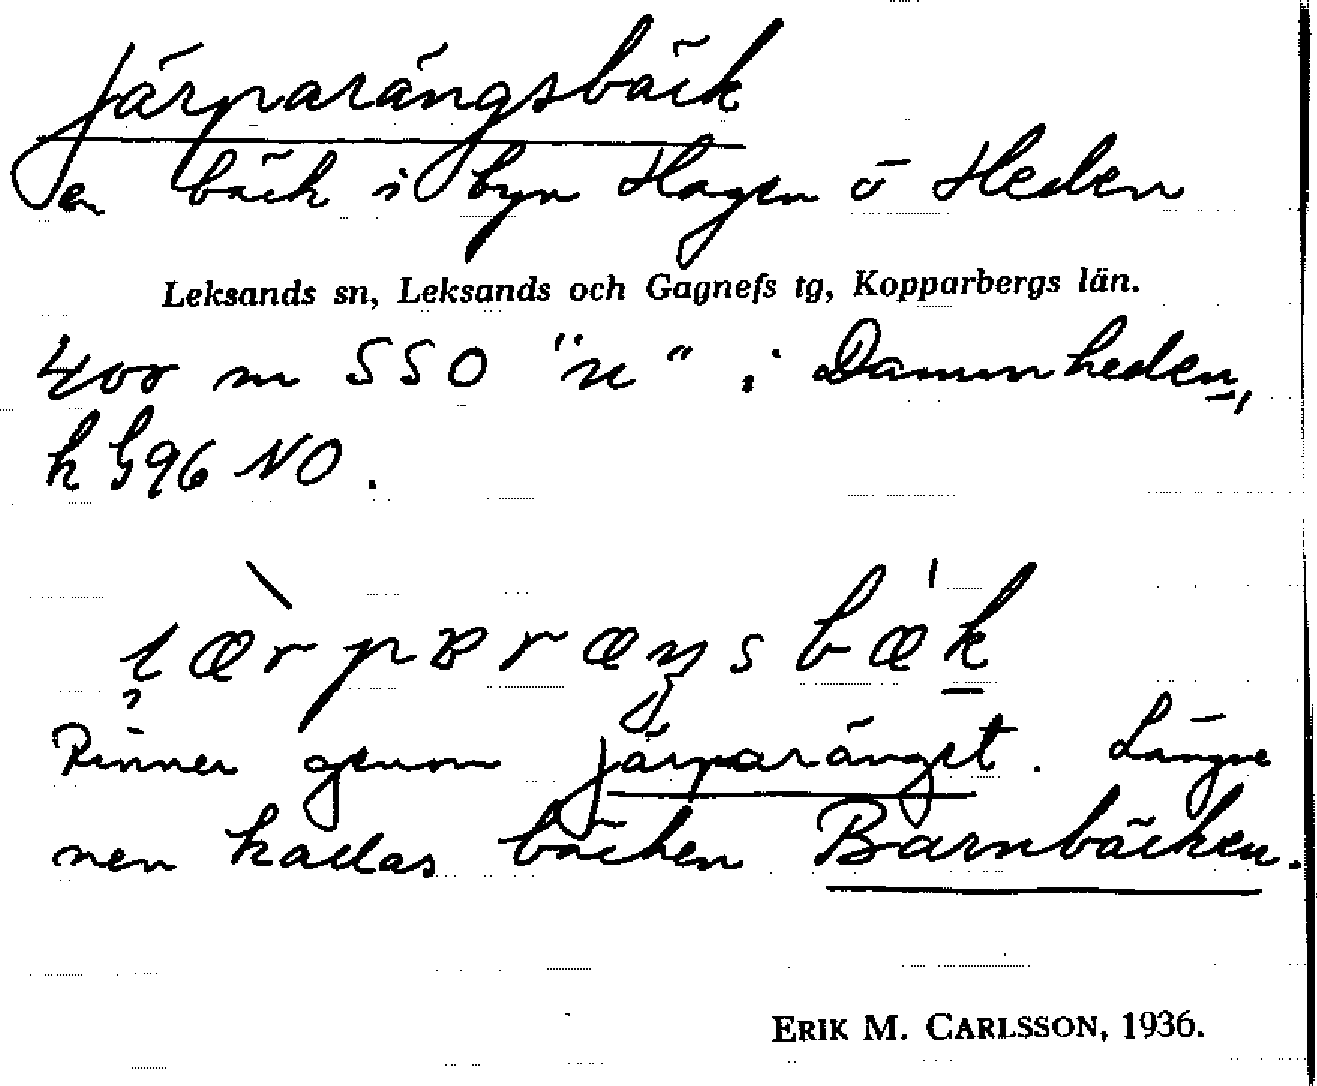 Järparängsbäck
en bäck i byn Hagen o Heden
Leksands sn, Leksands och Gagnefs tg, Kopparbergs län.
400 m SSO "n" i Dammheden,
k G96 NO.
i̯ærpɐræŋsbæk
Rinner genom Järparänget. Längre
ner kallas bäcken Barnbäcken.
ERIK M. CARLSSON, 1936.